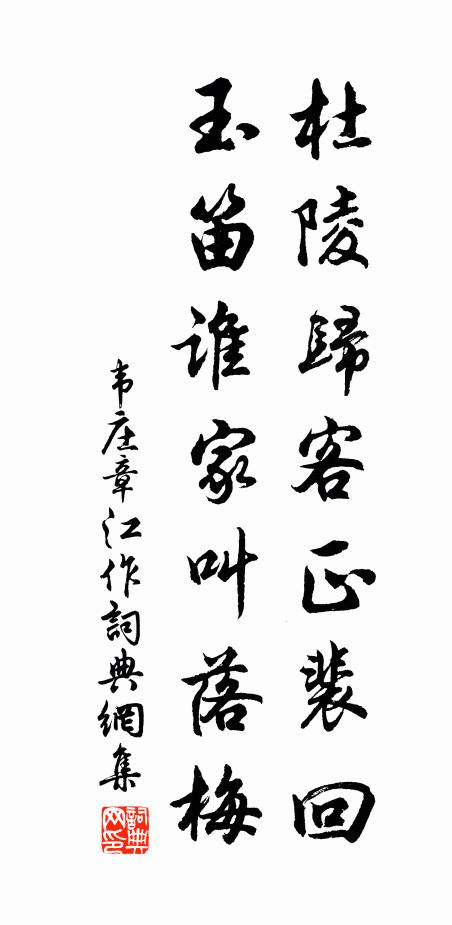 杜陵歸客正裴回
玉笛誰家叫落梅
韦庄章江作詞典網集
詞典网印